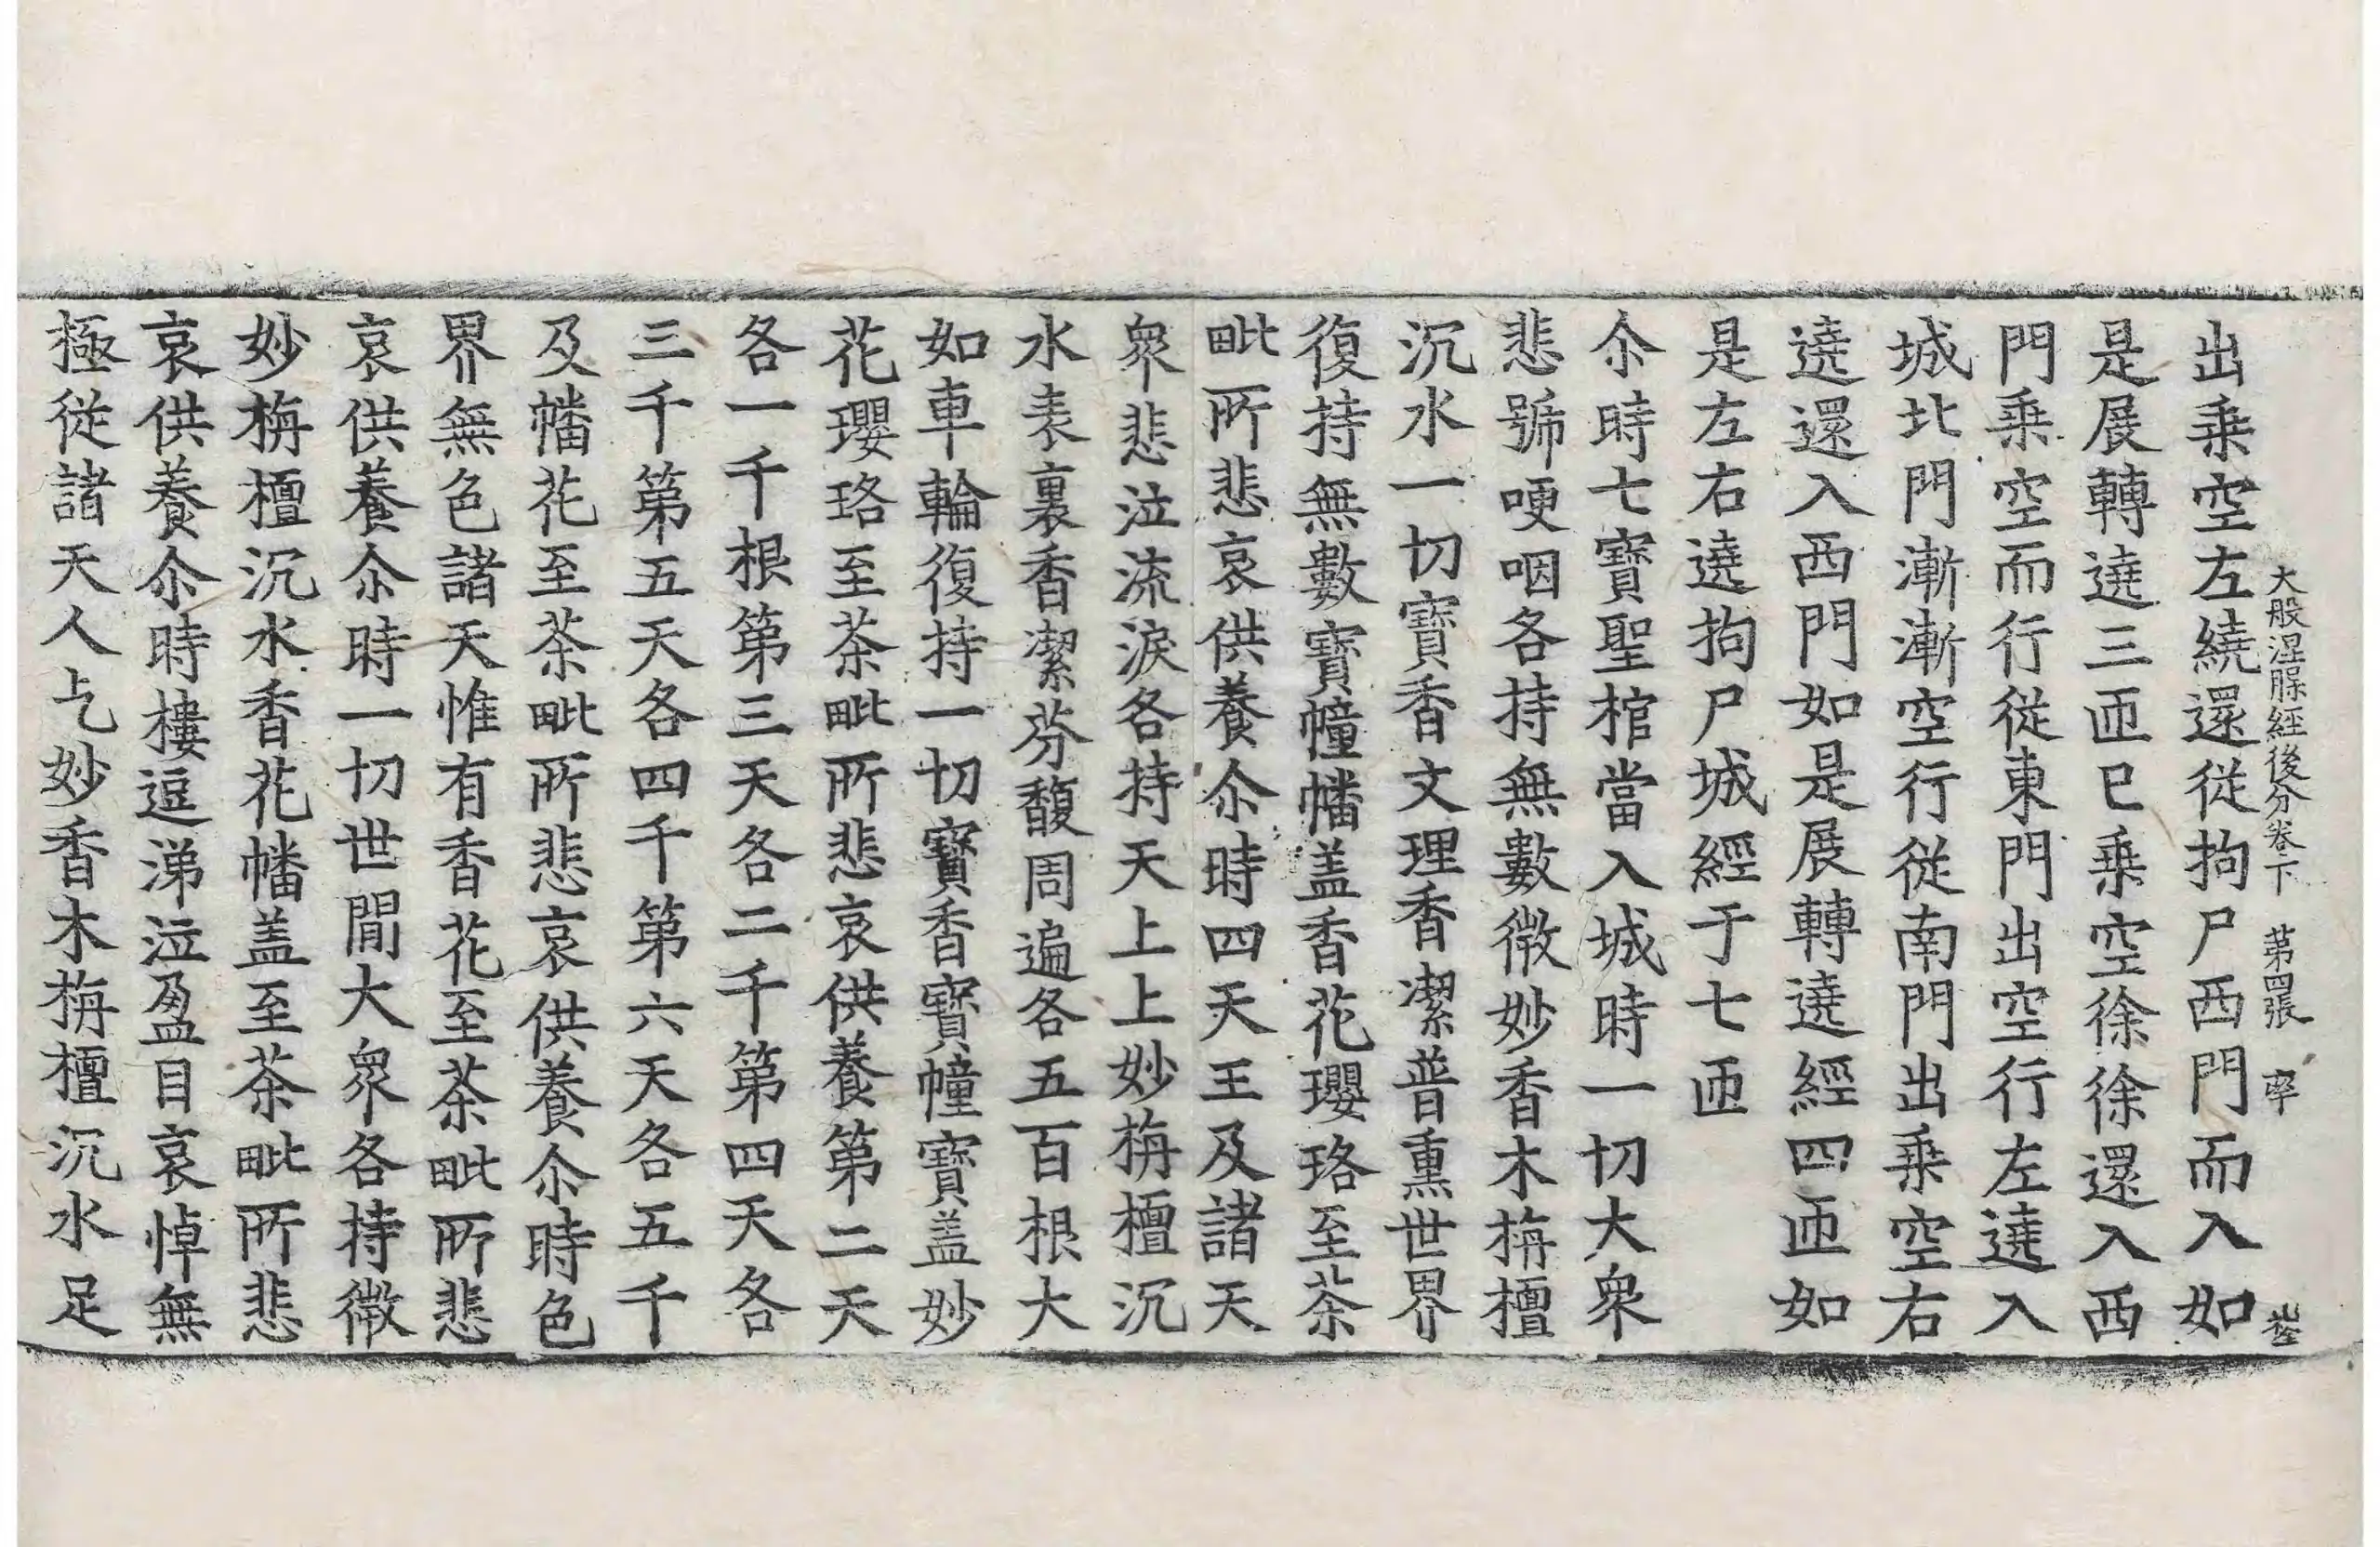 大般涅槃經後分卷下 第四張 率
出乗空左繞還從拘尸西門而入如
是展轉遶三匝已乗空徐徐還入西
門乗空而行從東門出空行左遶入
城北門漸漸空行從南門出乗空右
遶還入西門如是展轉遶經四匝如
是左右遶拘尸城經于七匝
尒時七寶聖棺當入城時一切大衆
悲號哽咽各持無數微妙香木栴檀
沉水一切寶香文理香潔普熏世界
復持無數寶幢幡盖香花瓔珞至茶
毗所悲哀供養尒時四天王及諸天
衆悲泣流淚各持天上上妙栴檀沉
水表裏香潔芬馥周遍各五百根大
如車輪復持一切寶香寶幢寶盖妙
花瓔珞至茶毗所悲哀供養第二天
各一千根第三天各二千第四天各
三千第五天各四千第六天各五千
及幡花至茶毗所悲哀供養尒時色
界無色諸天惟有香花至茶毗所悲
哀供養尒時一切世間大衆各持微
妙栴檀沉水香花幡盖至茶毗所悲
哀供養尒時樓逗涕泣盈目哀悼無
極從諸天人乞妙香木栴檀沉水足